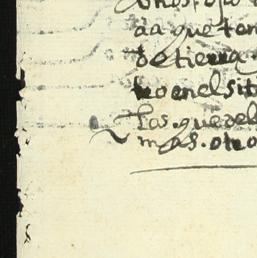 da que ten
de tierra
tro en el sit
las que del
mas. otro